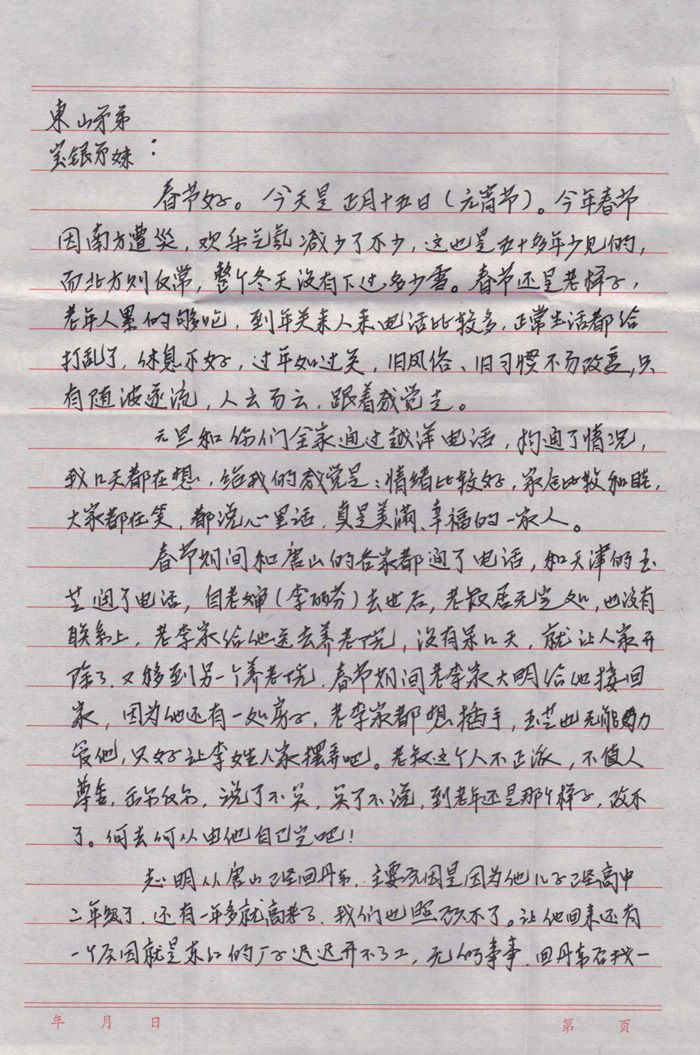 東山弟弟
宝银弟妹：
春节好。今天是正月十五日（元宵节）。今年春节
因南方遭灾，欢乐气氛减少了不少，这也是五十多年少见的，
而北方则反常，整个冬天没有下过多少雪。春节还是老样子，
老年人累的够呛，到年关来人来电话比较多，正常生活都给
打乱了，休息不好，过年如过关，旧风俗、旧习惯不易改变，只
有随波逐流，人云而云，跟着感觉走。
元旦和你们全家通过越洋电话，沟通了情况，
我几天都在想，给我的感觉是：情绪比较好，家庭比较和睦，
大家都在笑，都说心里话，真是美满、幸福的一家人。
春节期间和唐山的各家都通了电话，和天津的玉
芝通了电话，自老婶（李丽芬）去世后，老叔居无定处，也没有
联系上，老李家给他送去养老院，没有呆几天，就让人家开
除了又移到另一个养老院，春节期间老李家大明给他接回
家，因为他还有一处房子，老李家都想插手，玉芝也无能力
管他，只好让李姓人家摆弄吧。老叔这个人不正派，不值人
尊重，说了不算，算了不说，到老年还是那个样子，改不
了。何去何从由他自己定吧！
志明从唐山已经回丹东，主要原因是因为他儿子已经高中
二年级了，还有一年多就高考了，我们也照顾不了。让他回来还有
一个原因就是东江的厂子迟迟开不了工，无所事事，回丹东后找一
年 月 日
第 页